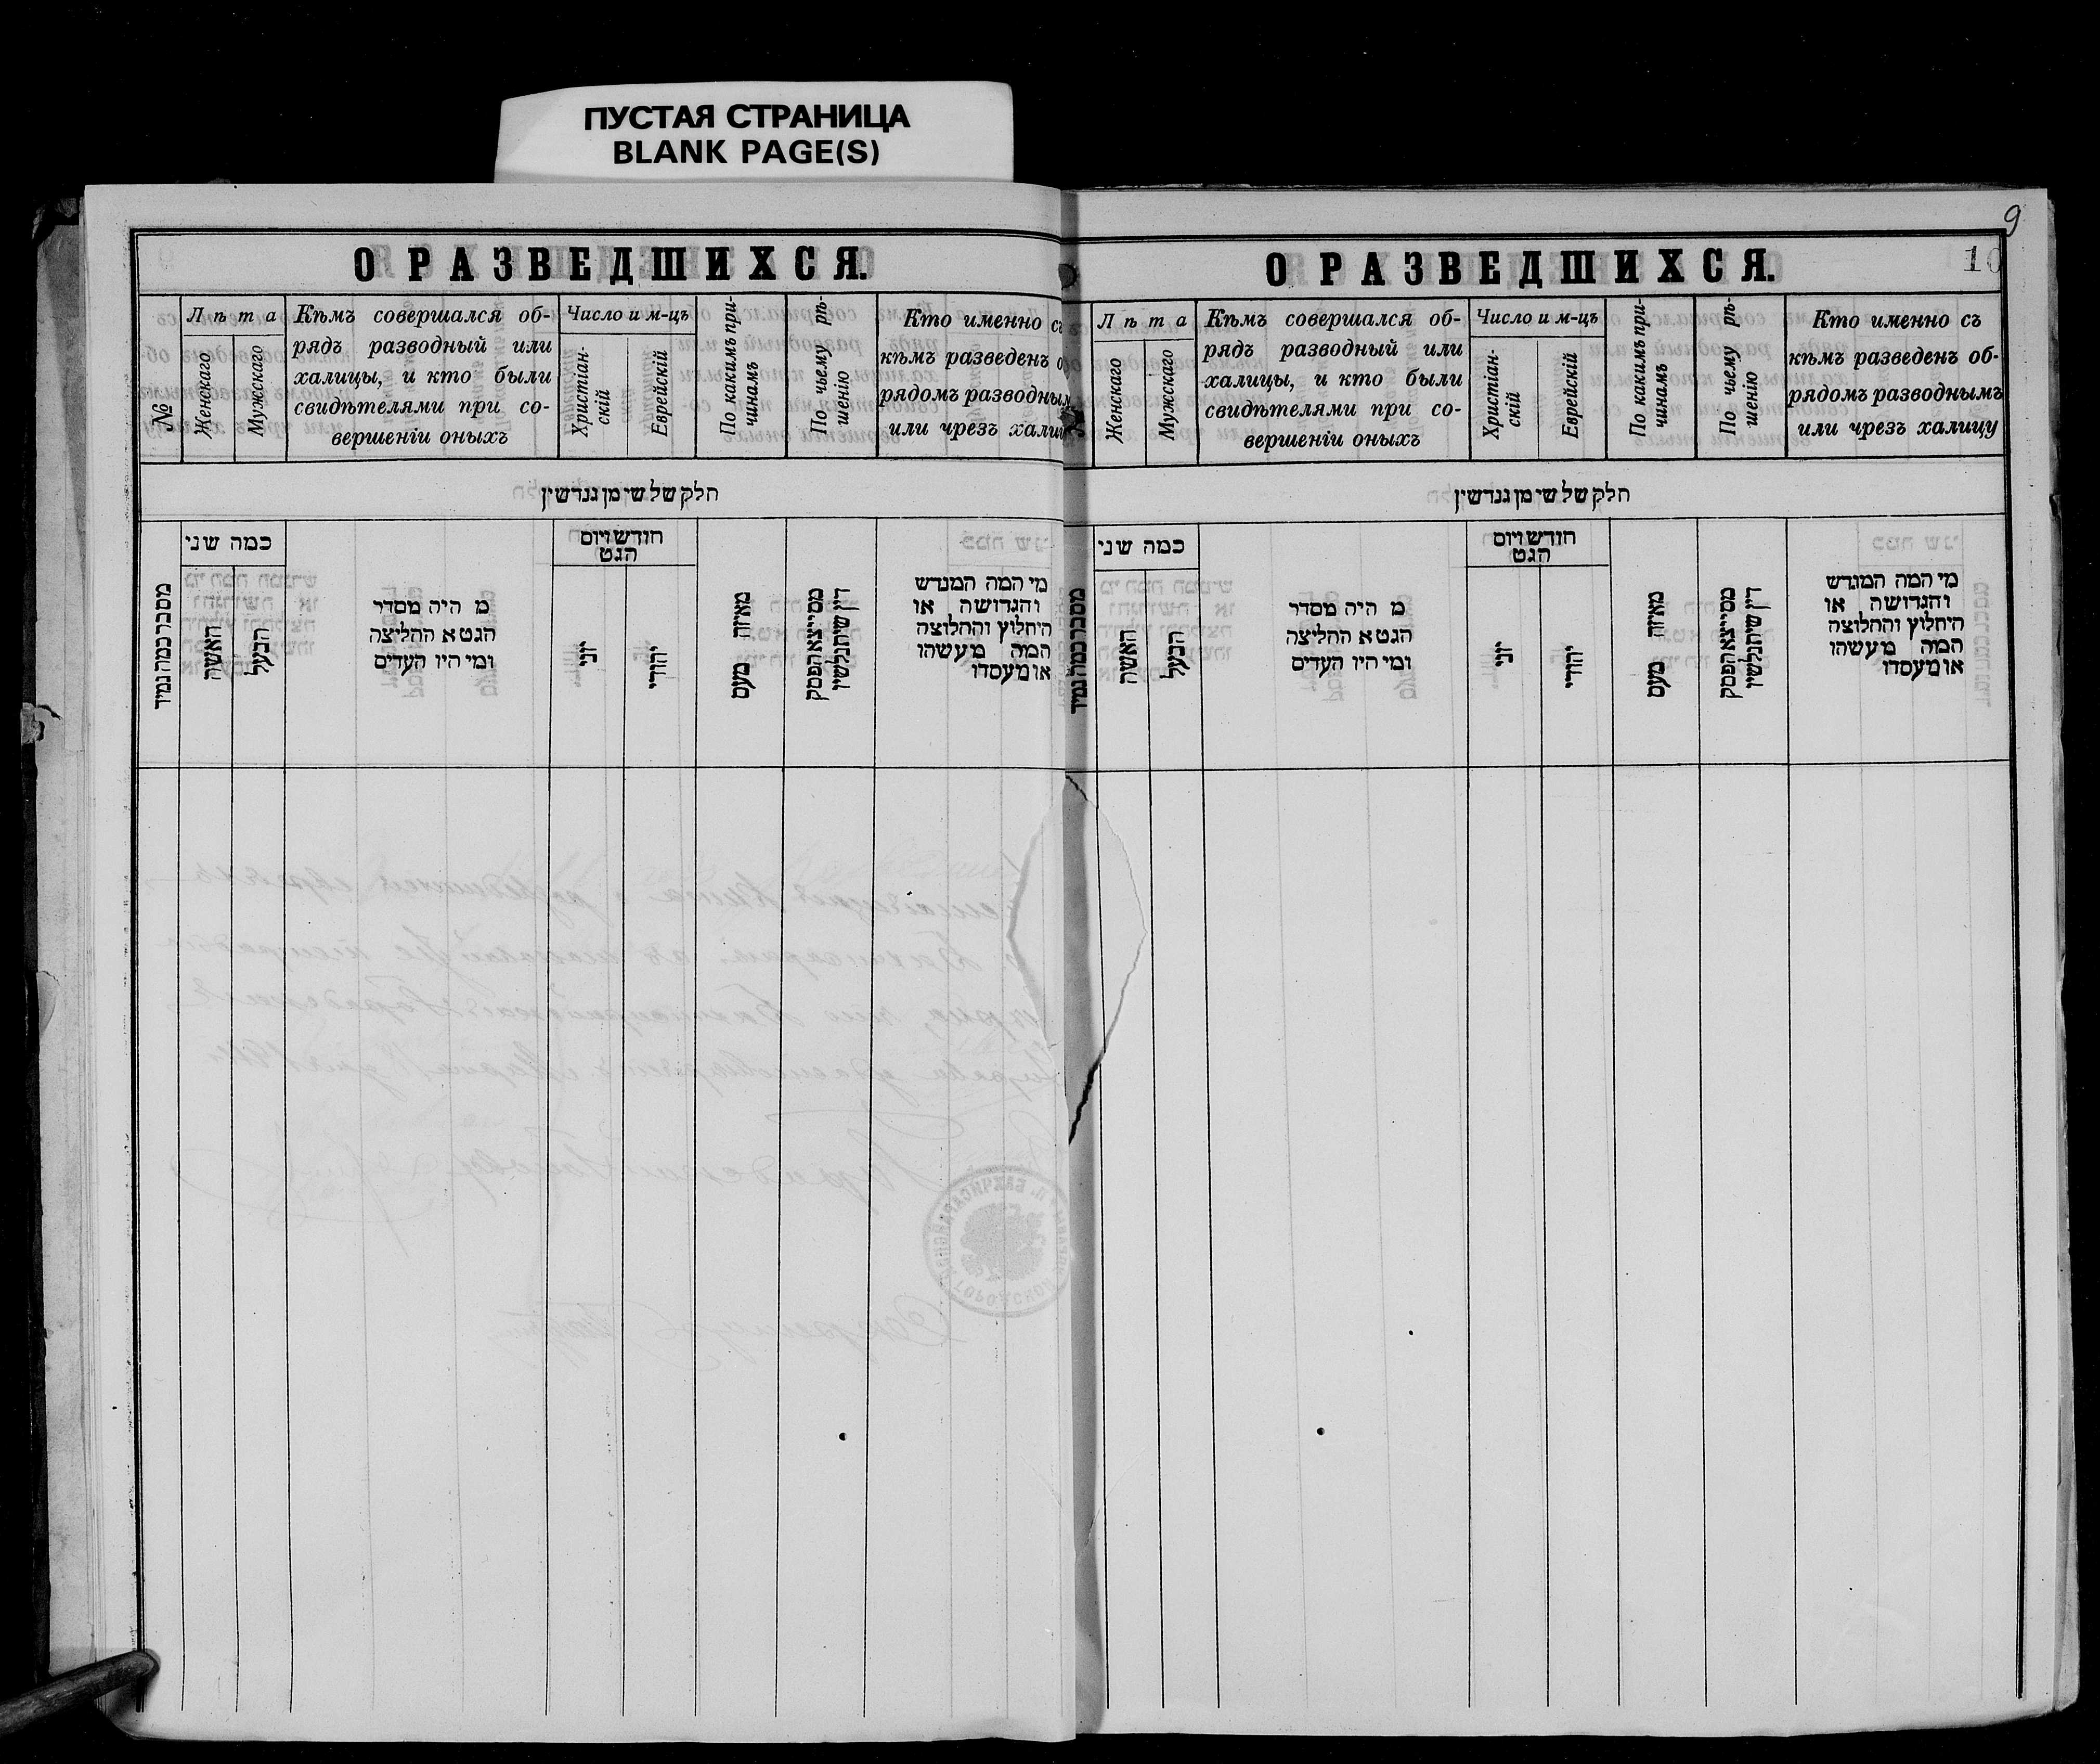 ПУСТАЯ СТРАНИЦА
BLANK PAGE(S)
О РАЗВЕДШИХСЯ.
№
Лѣта
Женскаго
Мужскаго
Кѣмъ совершался об-
рядъ разводный или
халицы, и кто были
свидѣтелями при со-
вершеніи оныхъ
Число и м-цъ
Христіан-
скій
Еврейскій
По какимъ при-
чинамъ
По чьему рѣ-
шенію
Кто именно съ
кѣмъ разведенъ о
рядомъ разводным
или чрезъ хали
חלק שלשי מן גנדשין
מספר כמה נמיר
כמה שני
האשה
הבעל
מ היה מסדר
הגט א החליצה
ומי היו העדים
חודש ויום
הגט
יוני
יהודי
מאיזה מעם
ממי יצא הפסק
דין שיתגלשין
מי המה המגדש
והגדושה או
היחלוץ והחלוצה
המה מעשהו
או מעסדו
9
О РАЗВЕДШИХСЯ.
10
Лѣта
Женскаго
Мужскаго
Кѣмъ совершался об-
рядъ разводный или
халицы, и кто были
свидѣтелями при со-
вершеніи оныхъ
Число и м-цъ
Христіан-
скій
Еврейскій
По какимъ при-
чинамъ
По чьему рѣ-
шенію
Кто именно съ
кѣмъ разведенъ об-
рядомъ разводнымъ
или чрезъ халицу
חלק שלשי מן גנדשין
מספר כמה נמיר
כמה שני
האשה
הבעל
מ היה מסדר
הגט א החליצה
ומי היו העדים
חודש ויום
הגט
יוני
יהודי
מאיזה מעם
ממי יצא הפסק
דין שיתגלשין
מי המה המגדש
והגדושה או
היחלוץ והחלוצה
המה מעשהו
או מעסדו